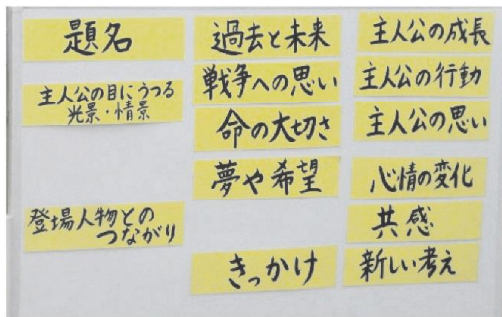 題名
主人公の目にうつる
光景・情景
登場人物との
つながり
過去と未来
戦争への思い
命の大切さ
夢や希望
きっかけ
主人公の成長
主人公の行動
主人公の思い
心情の変化
共感
新しい考え